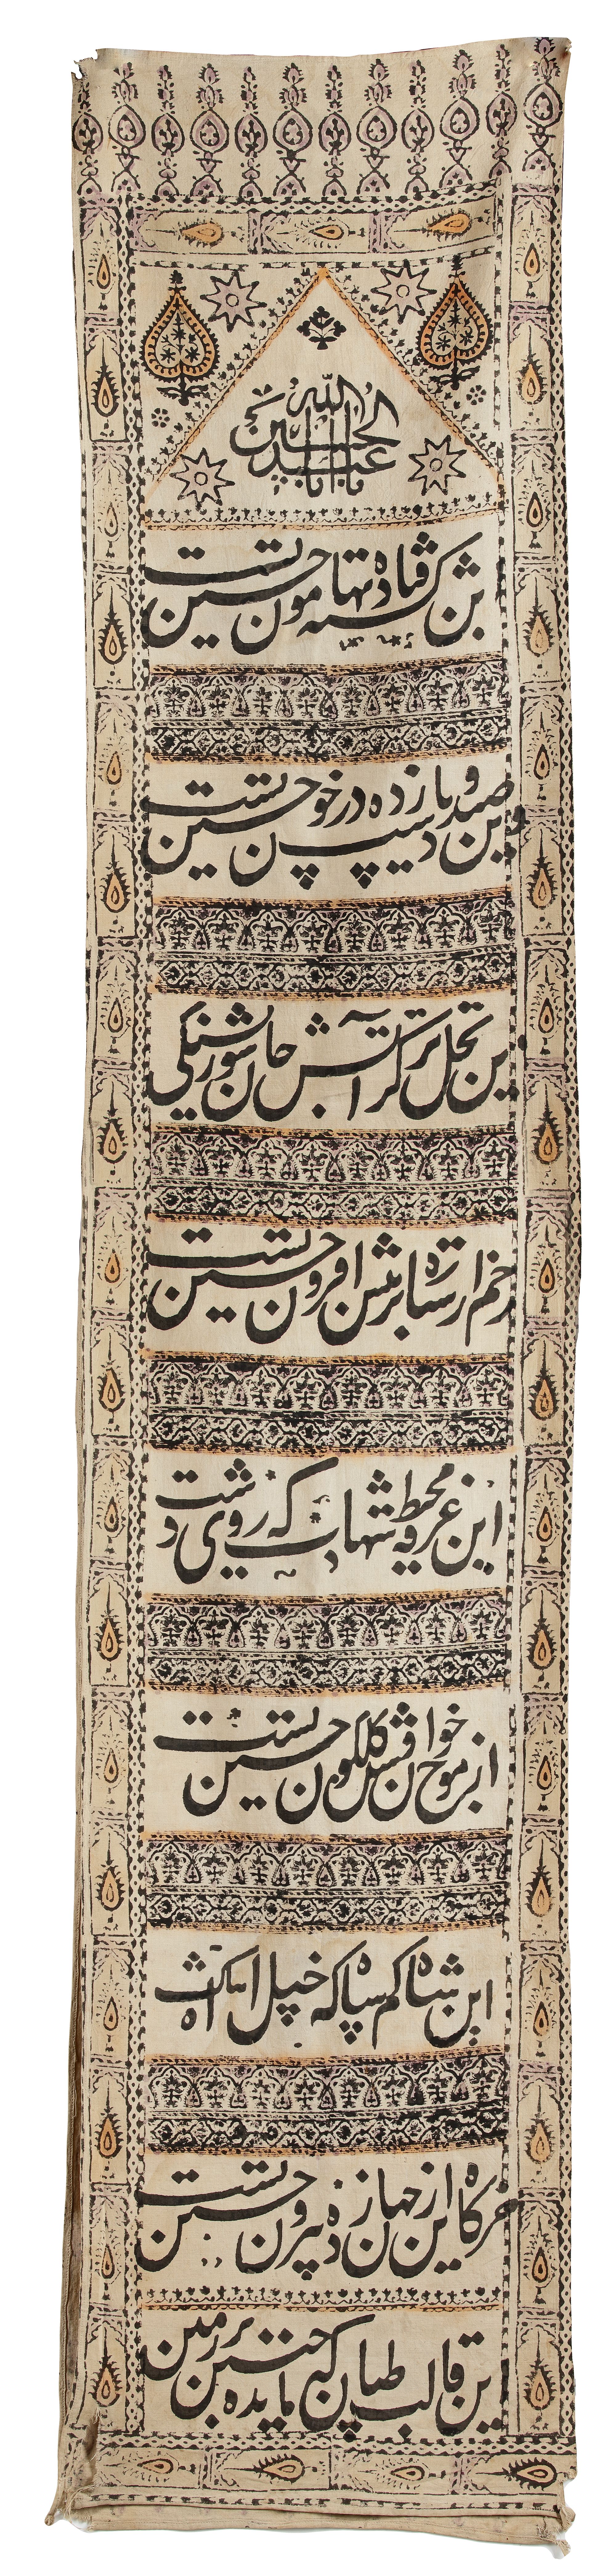 یا ابا عبدالله الحسین
ین کشته فتاده بهامون حسین تست
وین صید دست و پا زده در خون حسین تست
این نخل تر کز آتش جان سوز تشنگی
زخم از ستاره بر تنش افزون حسین تست
این غرقه محیط شهادت که روی دشت
از موج خون گلگون حسین تست
این شاه کم سپاه که خیل اشک آه
خرگاه ازین جهان زده بیرون حسین تست
این قالب طپان که چنین مانده بر زمین